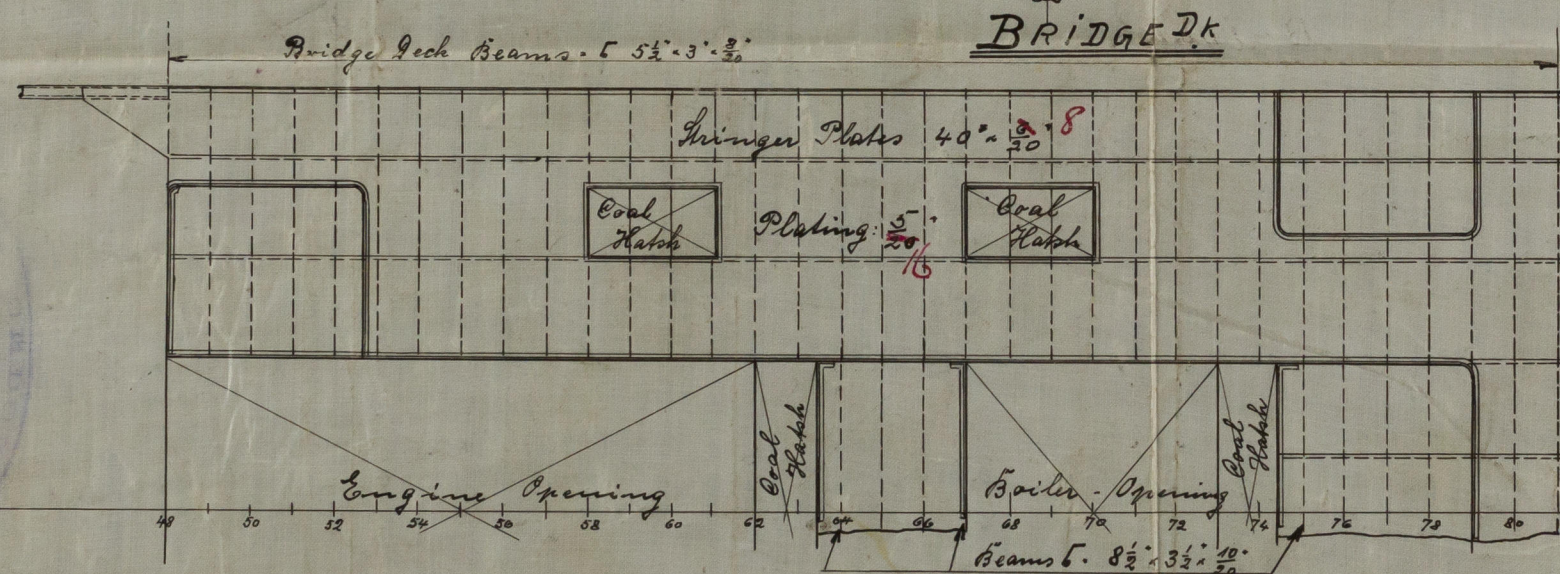 BRIDGE DK
Bridge Deck Beams. 5 1/2" × 3" × 8/20"
Stringer Plates 40" × /20" 8
Coal
Hatch
Plating: 5/20"
16
Coal
Hatch
Coal
Hatch
Coal
Hatch
Engine Opening
Boiler - Opening
48 50 52 54 56 58 60 62 64 66 68 70 72 74 76 78 80
Beams 8 1/2" × 3 1/2" × 10/20"